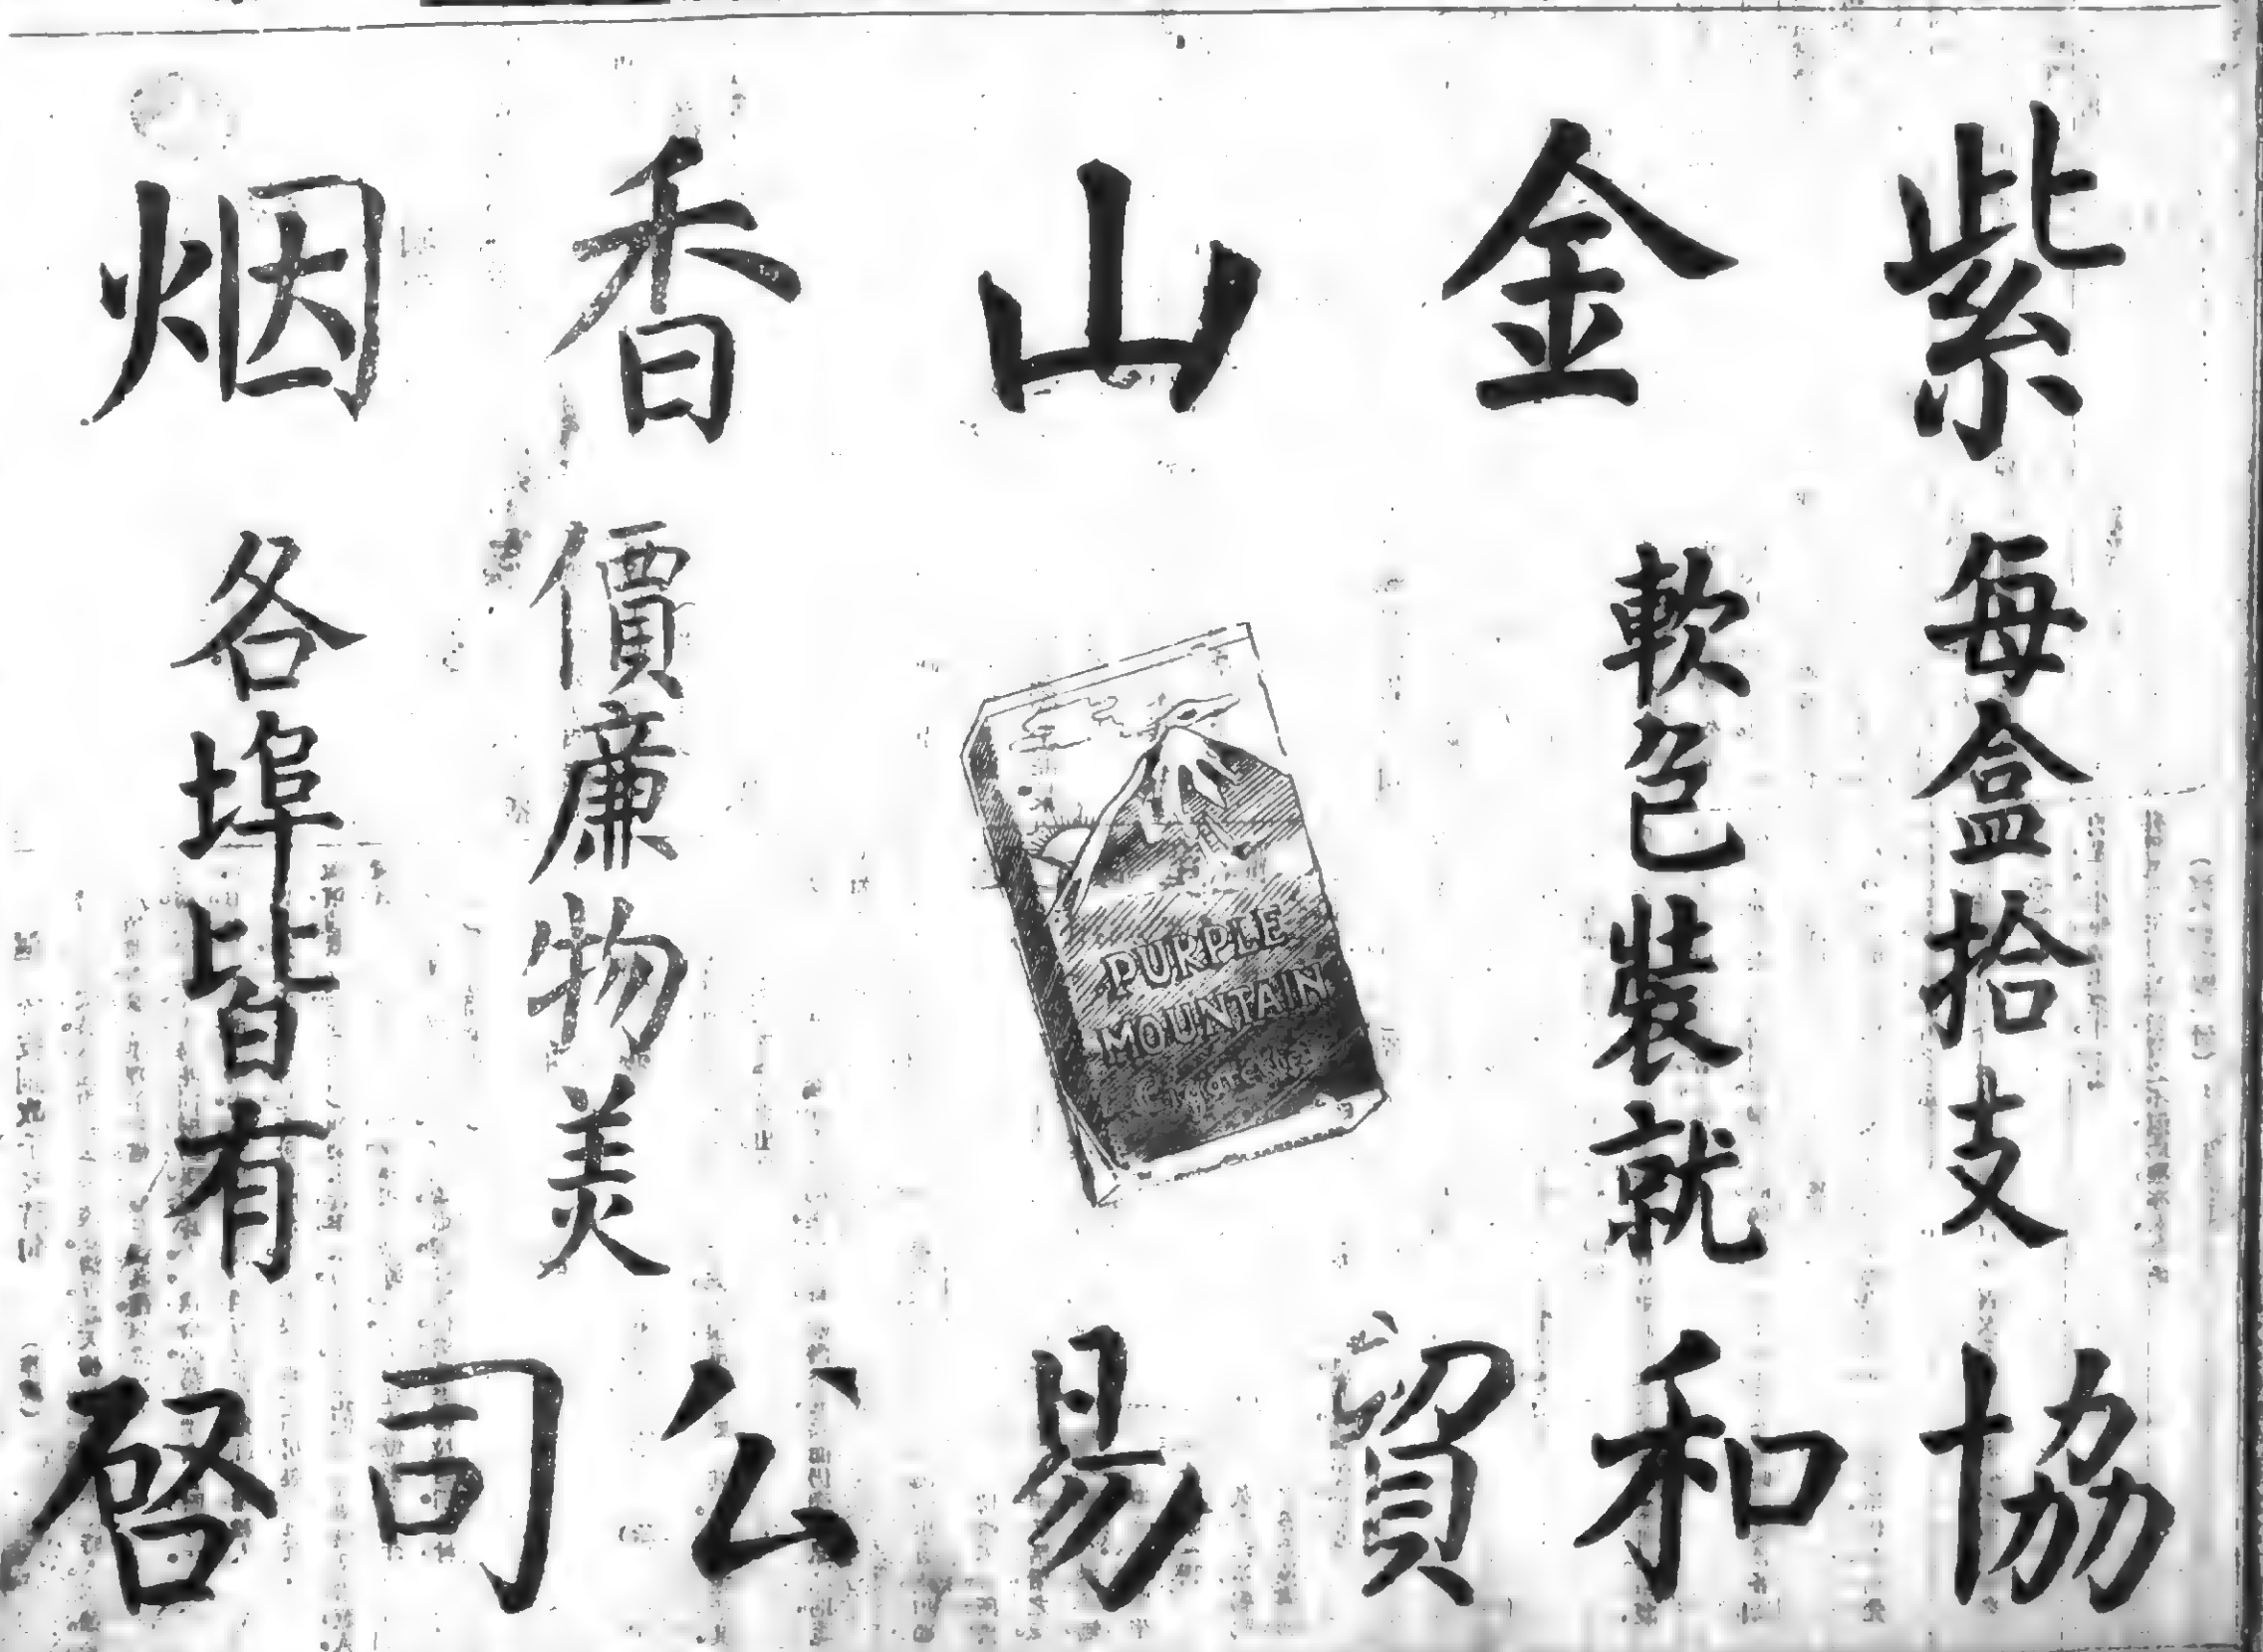 紫金山香烟
每盒拾支
軟包裝就
PURPLE
MOUNTAIN
Cigarettes
價廉物美
各埠皆有
協和貿易公司啓